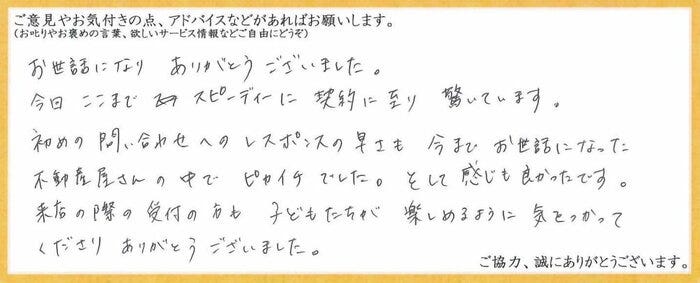 ご意見やお気付きの点、アドバイスなどがあればお願いします。
(お叱りやお褒めの言葉、欲しいサービス情報などご自由にどうぞ)
お世話になり ありがとうございました。
今日 ここまで スピーディーに 契約に至り 驚いています。
初めの 問い合わせへの レスポンスの早さも 今まで お世話になった
不動産屋さんの中で ピカイチでした。そして感じも良かったです。
来店の際の受付の方も 子どもたちが 楽しめるように 気をつかって
くださり ありがとうございました。
ご協力、誠にありがとうございます。